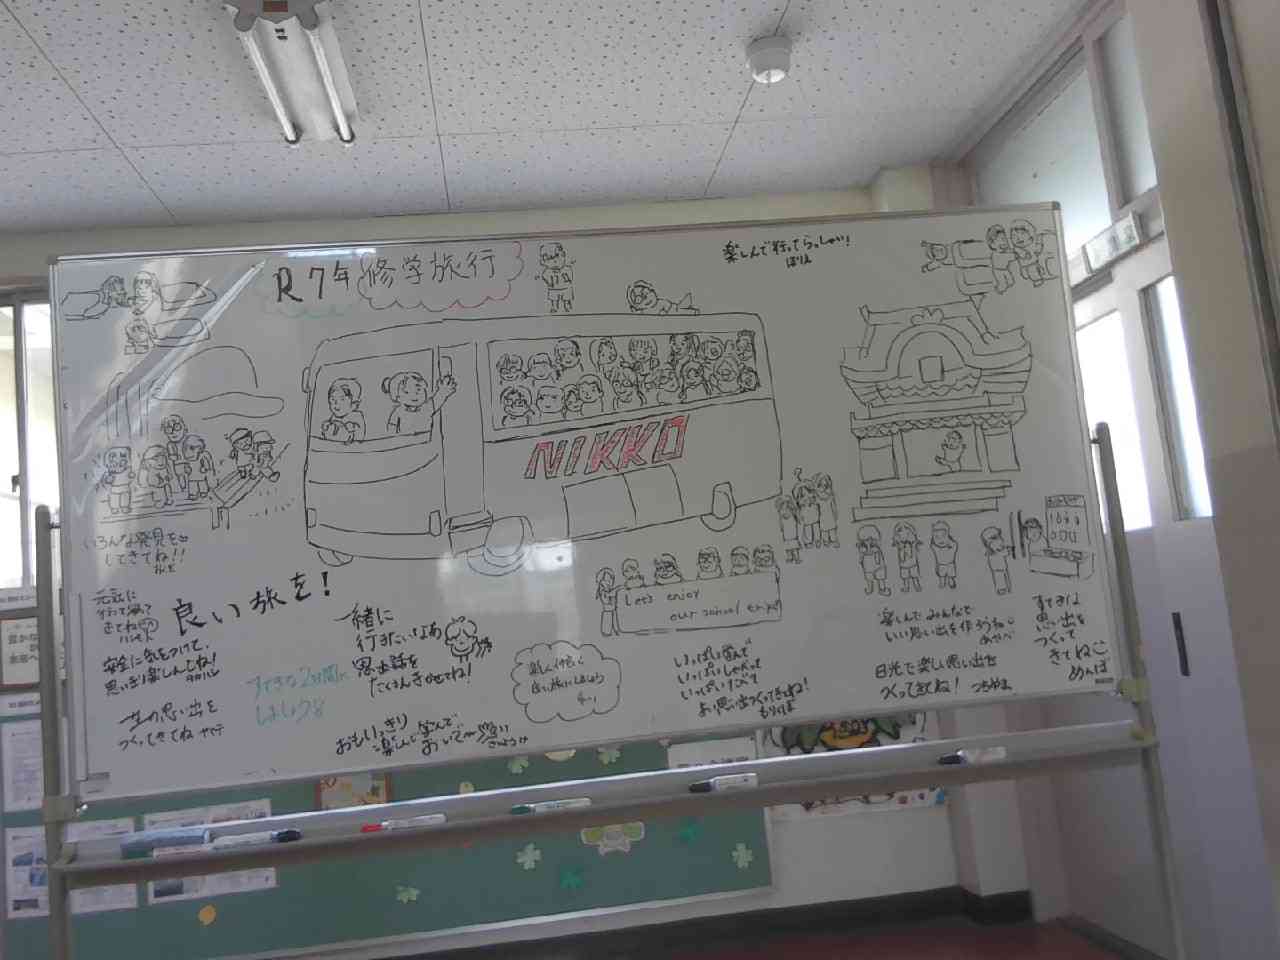 R7年 修学旅行
楽しんで行ってらっしゃい!
NIKKO
いろんな発見を
してきてね!!
良い旅を!
元気に
行って帰って
きてね
安全に気をつけて、
思いきり楽しんでね!
一生の思い出を
つくってきてね
すてきな2日間に
しましょう
一緒に
行きたいなあ
思出話を
たくさんきかせてね!
おもいっきり
楽しんで学んで
おいで
Let's enjoy
our school trip!
楽しく仲良く
良い旅にしましょう
いっぱい学んで
いっぱいしゃべって
いっぱい
よい思い出つくってきてね!
もりくぼ
楽しんでみんなで
いい思い出を作ろうね。
日光で楽しい思い出を
つくってきてね! つちやま
すてきな
思い出を
つくって
きてね